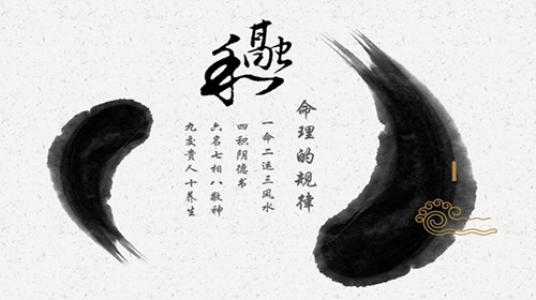 命理的规律
一命二运三风水
四积阴德书
六名七相八敬神
九交貴人十养生